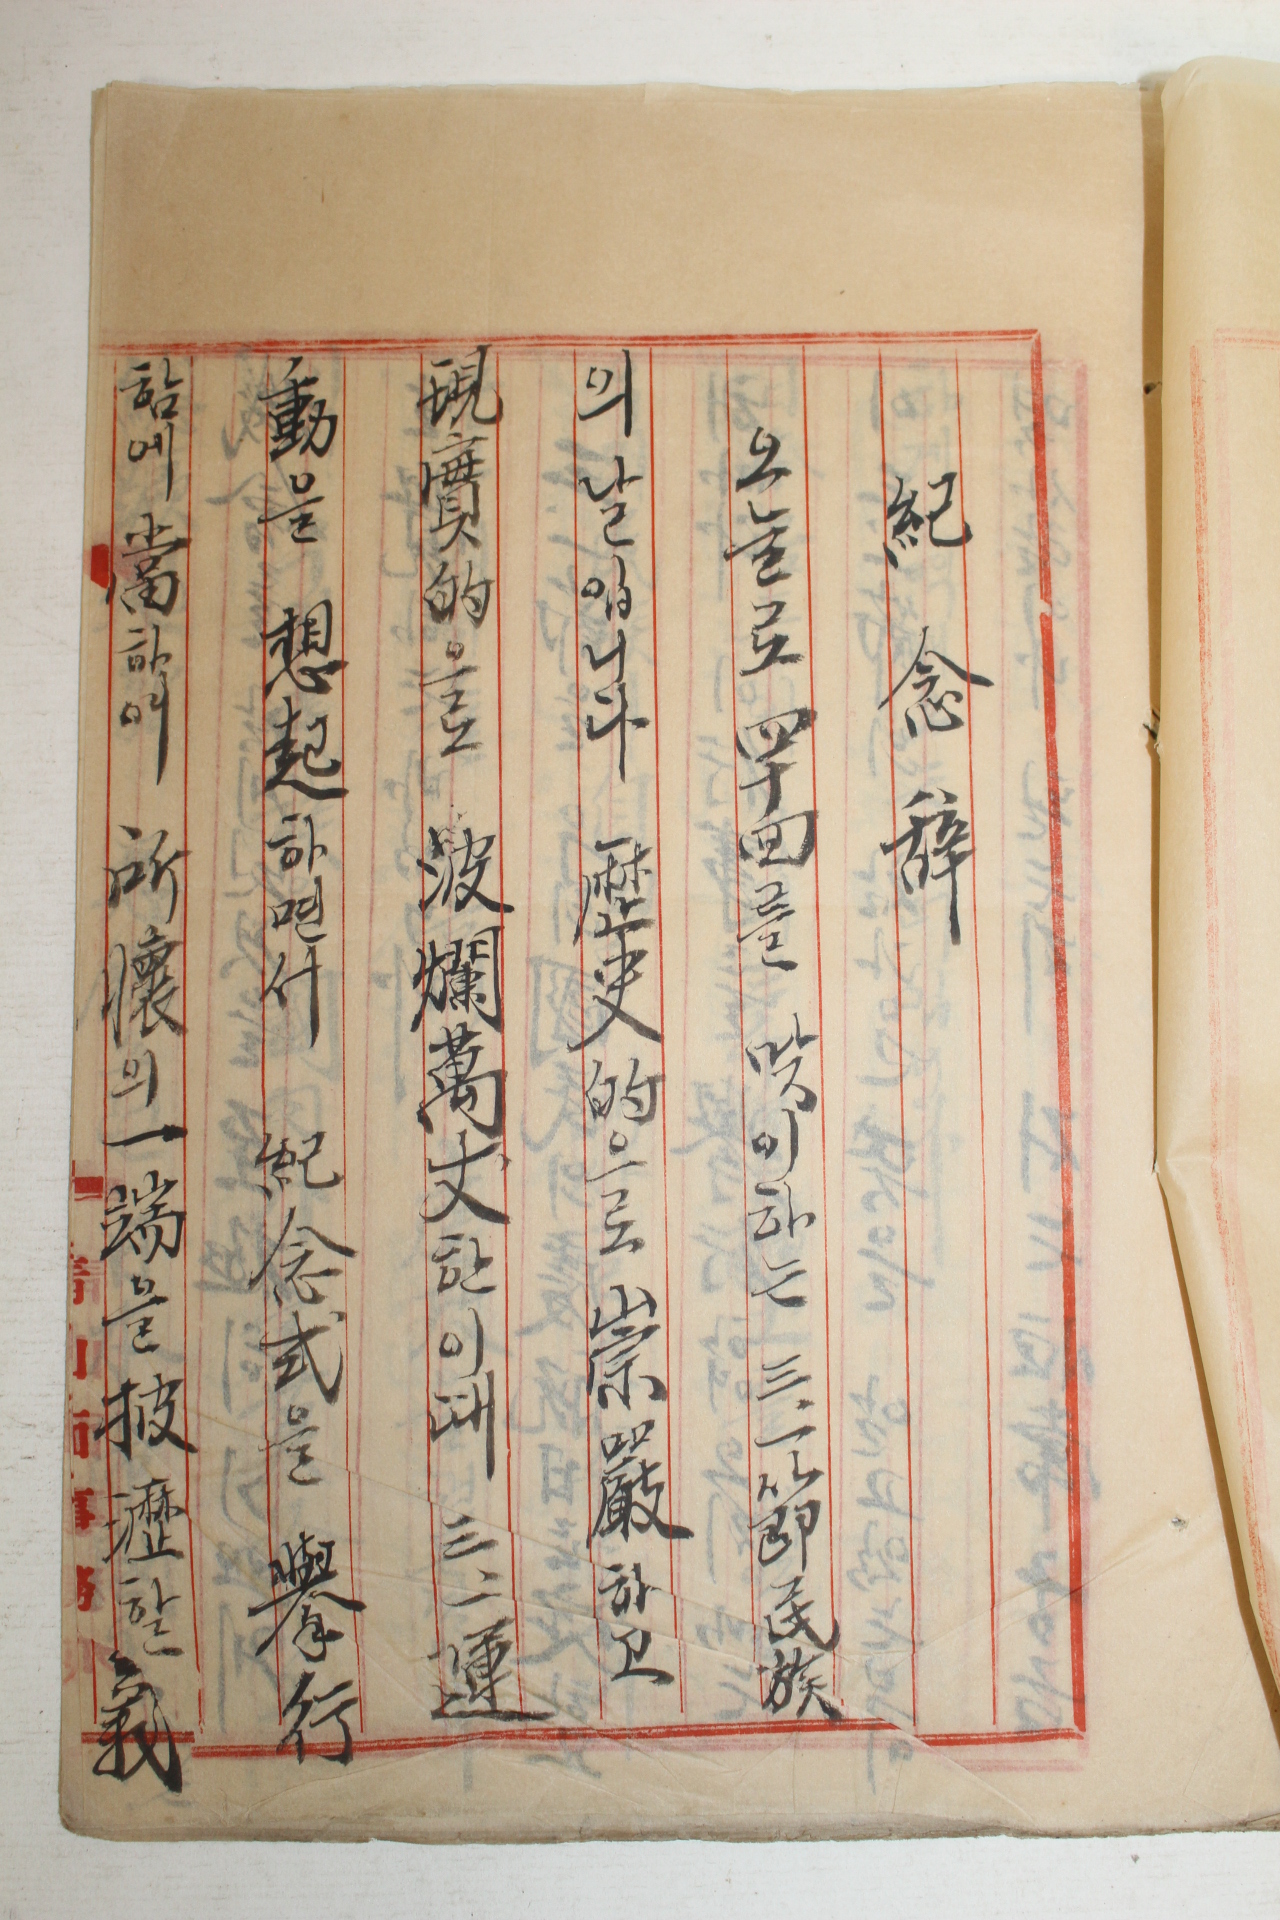 紀念辞
오늘로 四十回를 맞이하는 三一節 民族
의 날입니다 歷史的으로 崇嚴하고
現實的으로 波爛萬丈한 이때 三一運
動을 想起하면서 紀念式을 擧行
함에 當하여 所懷의 一端을 披瀝할 義